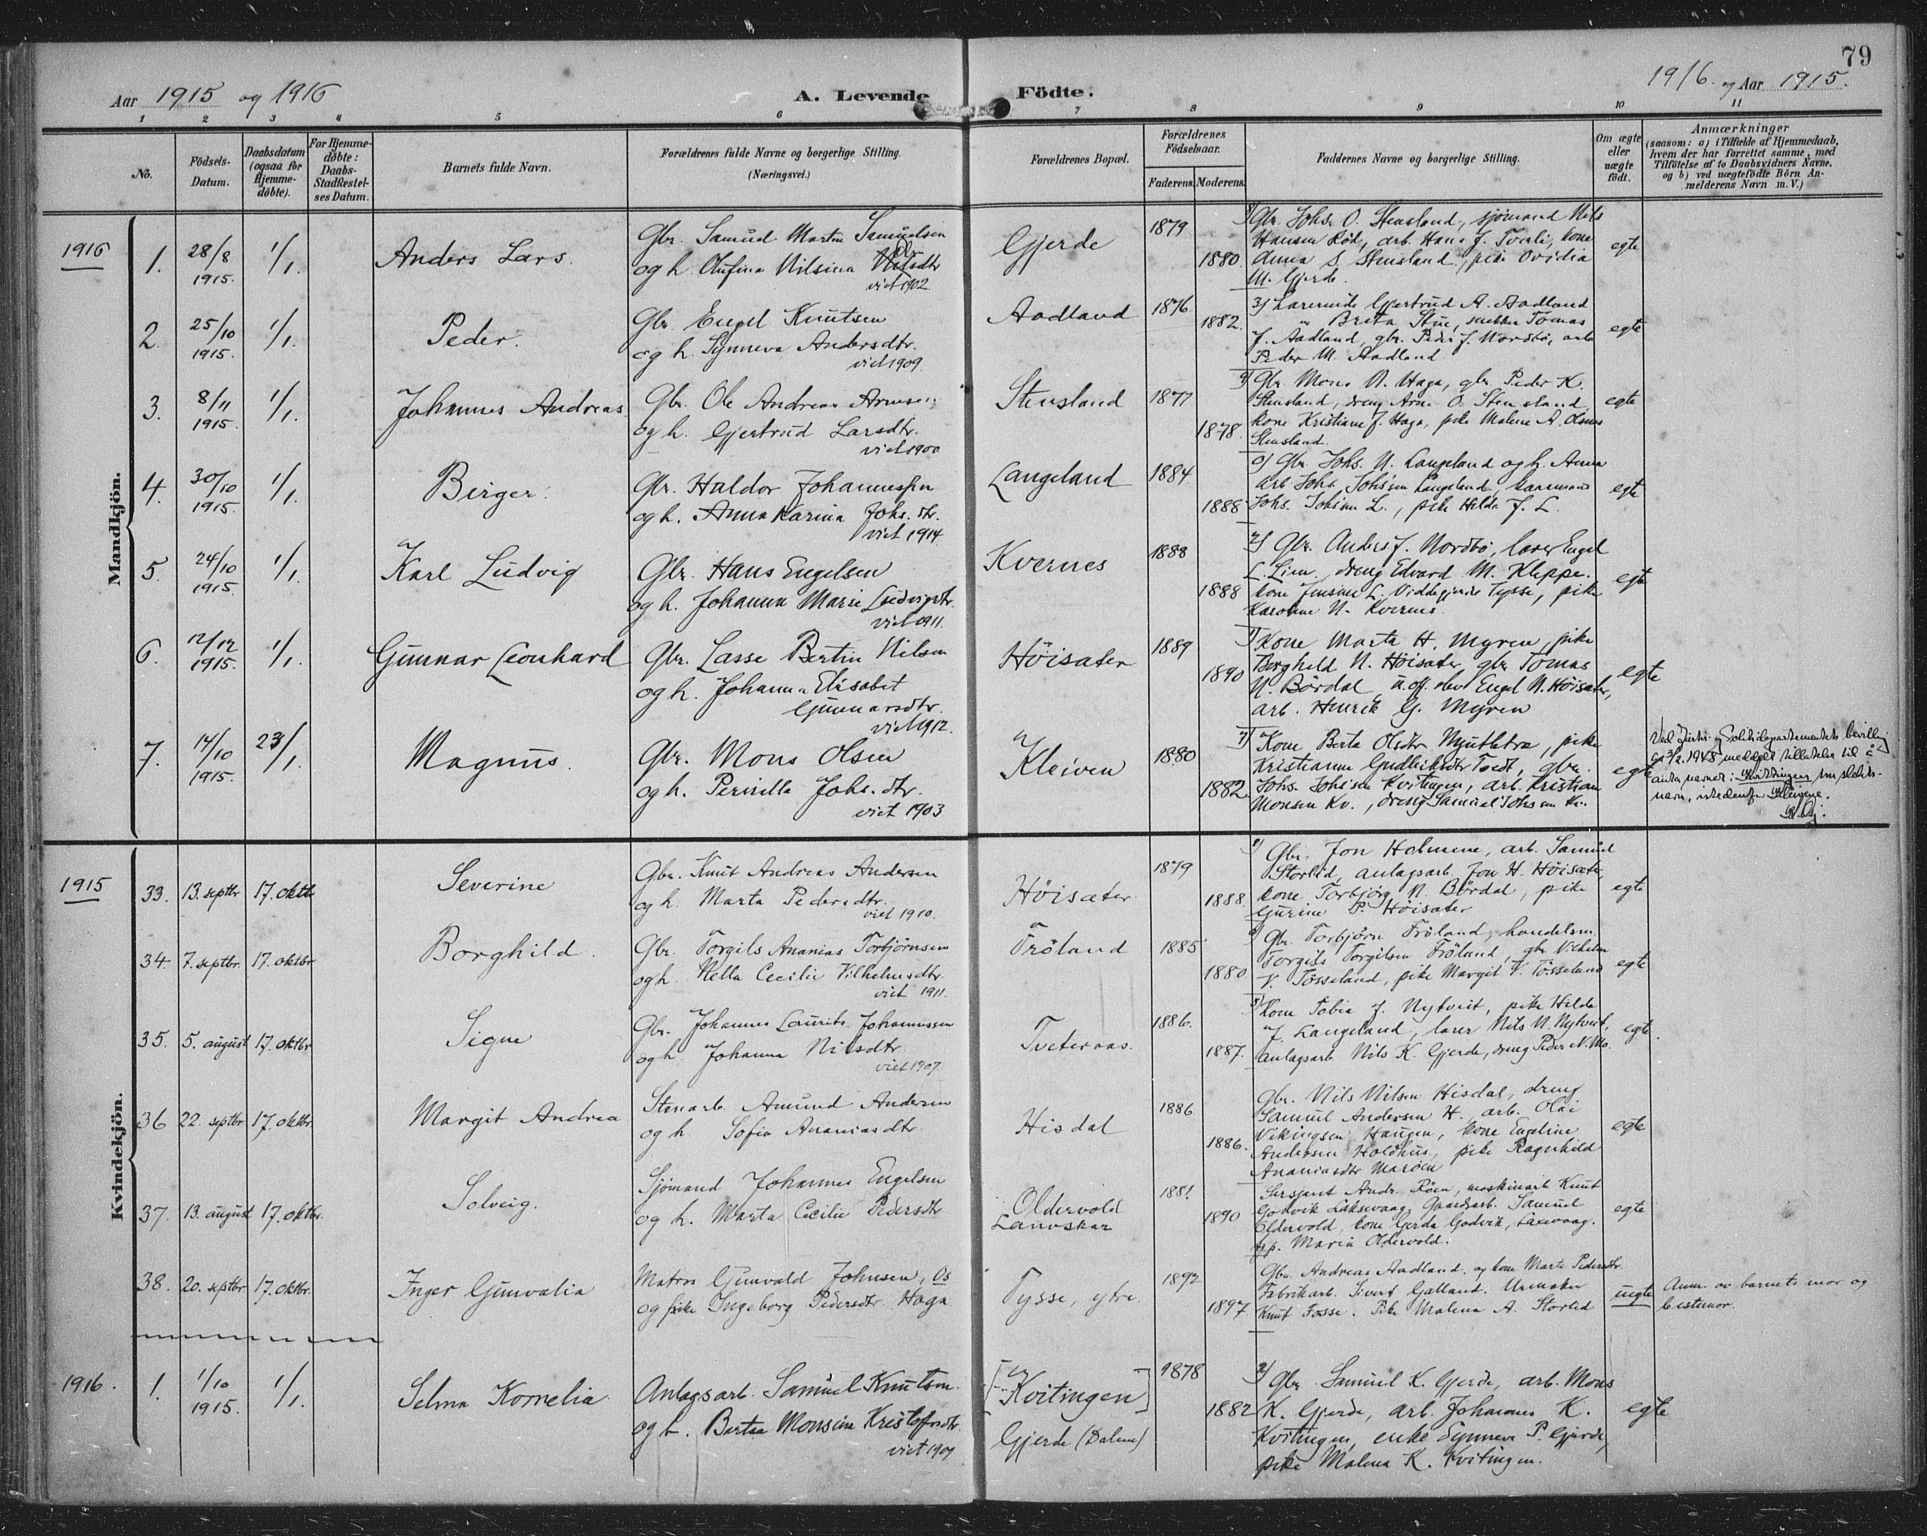 79
Aar 1915 og 1916
A. Levende Födte.
1916. og Aar 1915.
1 2 3 4 5 6 7 8 9 10 11
No.
Födsels-Datum.
Daabsdatum (ogsaa for Hjemme-döbte).
For Hjemme-döbte: Daabs-Stadfæstel-ses Datum.
Barnets fulde Navn.
Forældrenes fulde Navne og borgerlige Stilling.
(Næringsvei.)
Forældrenes Bopæl.
Forældrenes Födselsaar.
Faderens. Moderens.
Faddernes Navne og borgerlige Stilling.
Om ægte eller uægte födt.
Anmærkninger
(saasom: a) i Tilfælde af Hjemmedaab, hvem der har forrettet samme, med Tilföielse af to Daabsvidners Navne, og b) ved uægtefödte Börn An-melderens Navn m. V.)
Mandkjön.
1916
1. 28/8 1915. 1/1. Anders Lars.
Gbr. Samuel Martin Samuelsen
og h. Olufina Nilsina
viet 1902.
Gjerde 1879 1880.
Gbr. Johs. O. Stensland, sjömand Nils
Hansen Röd, arb. Hans J. Tverli, kone
Anna S. Stensland, pike Ovidia
M. Gjerde.
egte
2. 25/10 1915. 1/1. Peder.
Gbr. Engel Knutsen
og h. Synneva Andersdtr.
viet 1909.
Aadland 1876 1882.
3) Lærerinde Gjertrud A. Aadland
Brita Stue, snekker Tomas
J. Aadland, gbr. Peder J. Nordbö, arb.
Peder M. Aadland.
egte
3. 8/11 1915. 1/1. Johannes Andreas
Gbr. Ole Andreas Arnesen
og h. Gjertrud Larsdtr.
viet 1900
Stensland 1877 1878.
Gbr. Mons N. Haga, gbr. Peder K.
Stensland, dreng Arne O. Stensland
kone Kristiane J. Haga, pike Malene A. Olsnes
Stensland.
egte
4. 30/10 1915. 1/1. Birger.
Gbr. Haldor Johannessen
og h. Anna Karina Johs. dtr.
viet 1914.
Langeland 1884. 1888.
Gbr. Johs. N. Langeland og h. Anna
arb. Johs. Johssen Langeland,
Johs. Johssen L., pike Hilda J. L.
egte
5. 24/10 1915. 1/1. Karl Ludvig
Gbr. Hans Engelsen
og h. Johanna Marie Ludvigsdtr.
viet 1911.
Kvernes 1888 1888
Gbr. Anders J. Nordbö, lærer Engel
L. Lien, dreng Edvard M. Kleppe.
kone Jensine L. Tysse, pike
Karoline N. Kvernes.
egte
6. 12/12 1915. 1/1. Gunnar Leonhard
Gbr. Lasse Bertin Nilsen
og h. Johanna Elisabet
Gunnarsdtr.
viet 1912.
Höisæter 1889 1890
Kone Marta H. Myren, pike
Borghild N. Höisæter, gbr. Tomas
N. Bördal, u.off. elev Engel N. Höisæter,
arb. Henrik G. Myren
egte
7. 14/10 1915. 23/1. Magnus.
Gbr. Mons Olsen
og h. Pernilla Johs. dtr.
viet 1903
Kleiven 1880 1882.
Kone Berta Olsdtr. Myutletræ, pike
Kristianne Gudleiksdtr. Tvedt, gbr.
Johs. Johssen Kvitingen, arb. Kristian
Monsen Kv., dreng Samuel Johssen Kv.
egte
Ved Justis- og Politidepartementets bevilling
av 3/2 1915 meddelt tilladelse til å
anta navnet: Kvittingen som slekts-
navn, istedenfor Kleivene.
Kvindekjön.
1915
33. 13. septbr 17. oktbr Severine
Gbr. Knut Andreas Andersen
og h. Marta Pedersdtr.
viet 1910.
Höisæter 1879 1888.
Gbr. Jon Holmene, arb. Samuel
Storlid, anlagsarb. Jon H. Höisæter,
kone Torbjørg N. Bördal, pike
Gurine P. Höisæter
egte
34. 7. septbr. 17. oktbr Borghild.
Gbr. Torgils Ananias Torbjørnsen
og h. Hella Cecilie Vilhelmsdtr.
viet 1911.
Fröland 1885 1880
Gbr. Torbjörn Fröland, handelsm.
Torgils Torgilsen Fröland, gbr. Vilhelm
V. Tösseland, pike Margit V. Tösseland
egte
35. 5. august 17. oktbr Signe
Gbr. Johannes Laurits Johannessen
og h. Johanna Nilsdtr.
viet 1907.
Tveteraas. 1886. 1887.
Kone Tobia J. Nytveit, pike Hilda
J. Langeland, lærer Nils N. Nytveit,
anlagsarb. Nils K. Gjerde, dreng Peder N. Mo.
egte.
36 22. septbr 17. oktbr. Margit Andrea
Stenarb. Amund Andersen
og h Sofia Ananiasdtr.
Hisdal 1886 1886.
Gbr. Nils Nilsen Hisdal, dreng
Samuel Andersen H., arb. Olai
Vikingsen Haugen, kone Engeline
Andersen Holdhus, pike Ragnhild
Ananiasdtr Maröen
egte
37. 13. august 17. oktbr. Solveig.
Sjömand Johannes Engelsen
og h. Marta Cecilie Pedersdtr.
Oldervold
Lanvskar
1881. 1890
Sersjant Andr. Röen, maskinarb Knut
Godvik Laksevaag, Gaardsarb. Samuel
Oldervold, kone Gerda Godvik, Laxevaag.
pp. Maria Oldervold.
egte
38. 20. septbr 17. oktbr. Inger Gunvalia
Matros Gunvald Johnsen, Os
og pike Ingeborg Pedersdtr. Haga
Tysse, ytre. 1892 1897
Gbr. Andreas Aadland og kone Marta Pedersdtr.
Fabrikarb. Sivert Galland. Urmaker
Knut Fosse. Pike Malena A. Storlid
uegte
Anm. av barnets mor og
bestemor.
1916.
1. 1/10 1915. 1/1. Selma Kornelia.
Anlagsarb. Samuel Knutsen
og h. Bertaa Monsina Kristofersdtr.
viet 1907
[Kvitingen]
Gjerde (Dalene)
1878 1882
2) Gbr Samuel K. Gjerde, arb. Mons
K. Gjerde, arb. Johannes K.
Kvitingen, enke Synneve P. Gjerde,
pike Malena K. Kvitingen.
egte